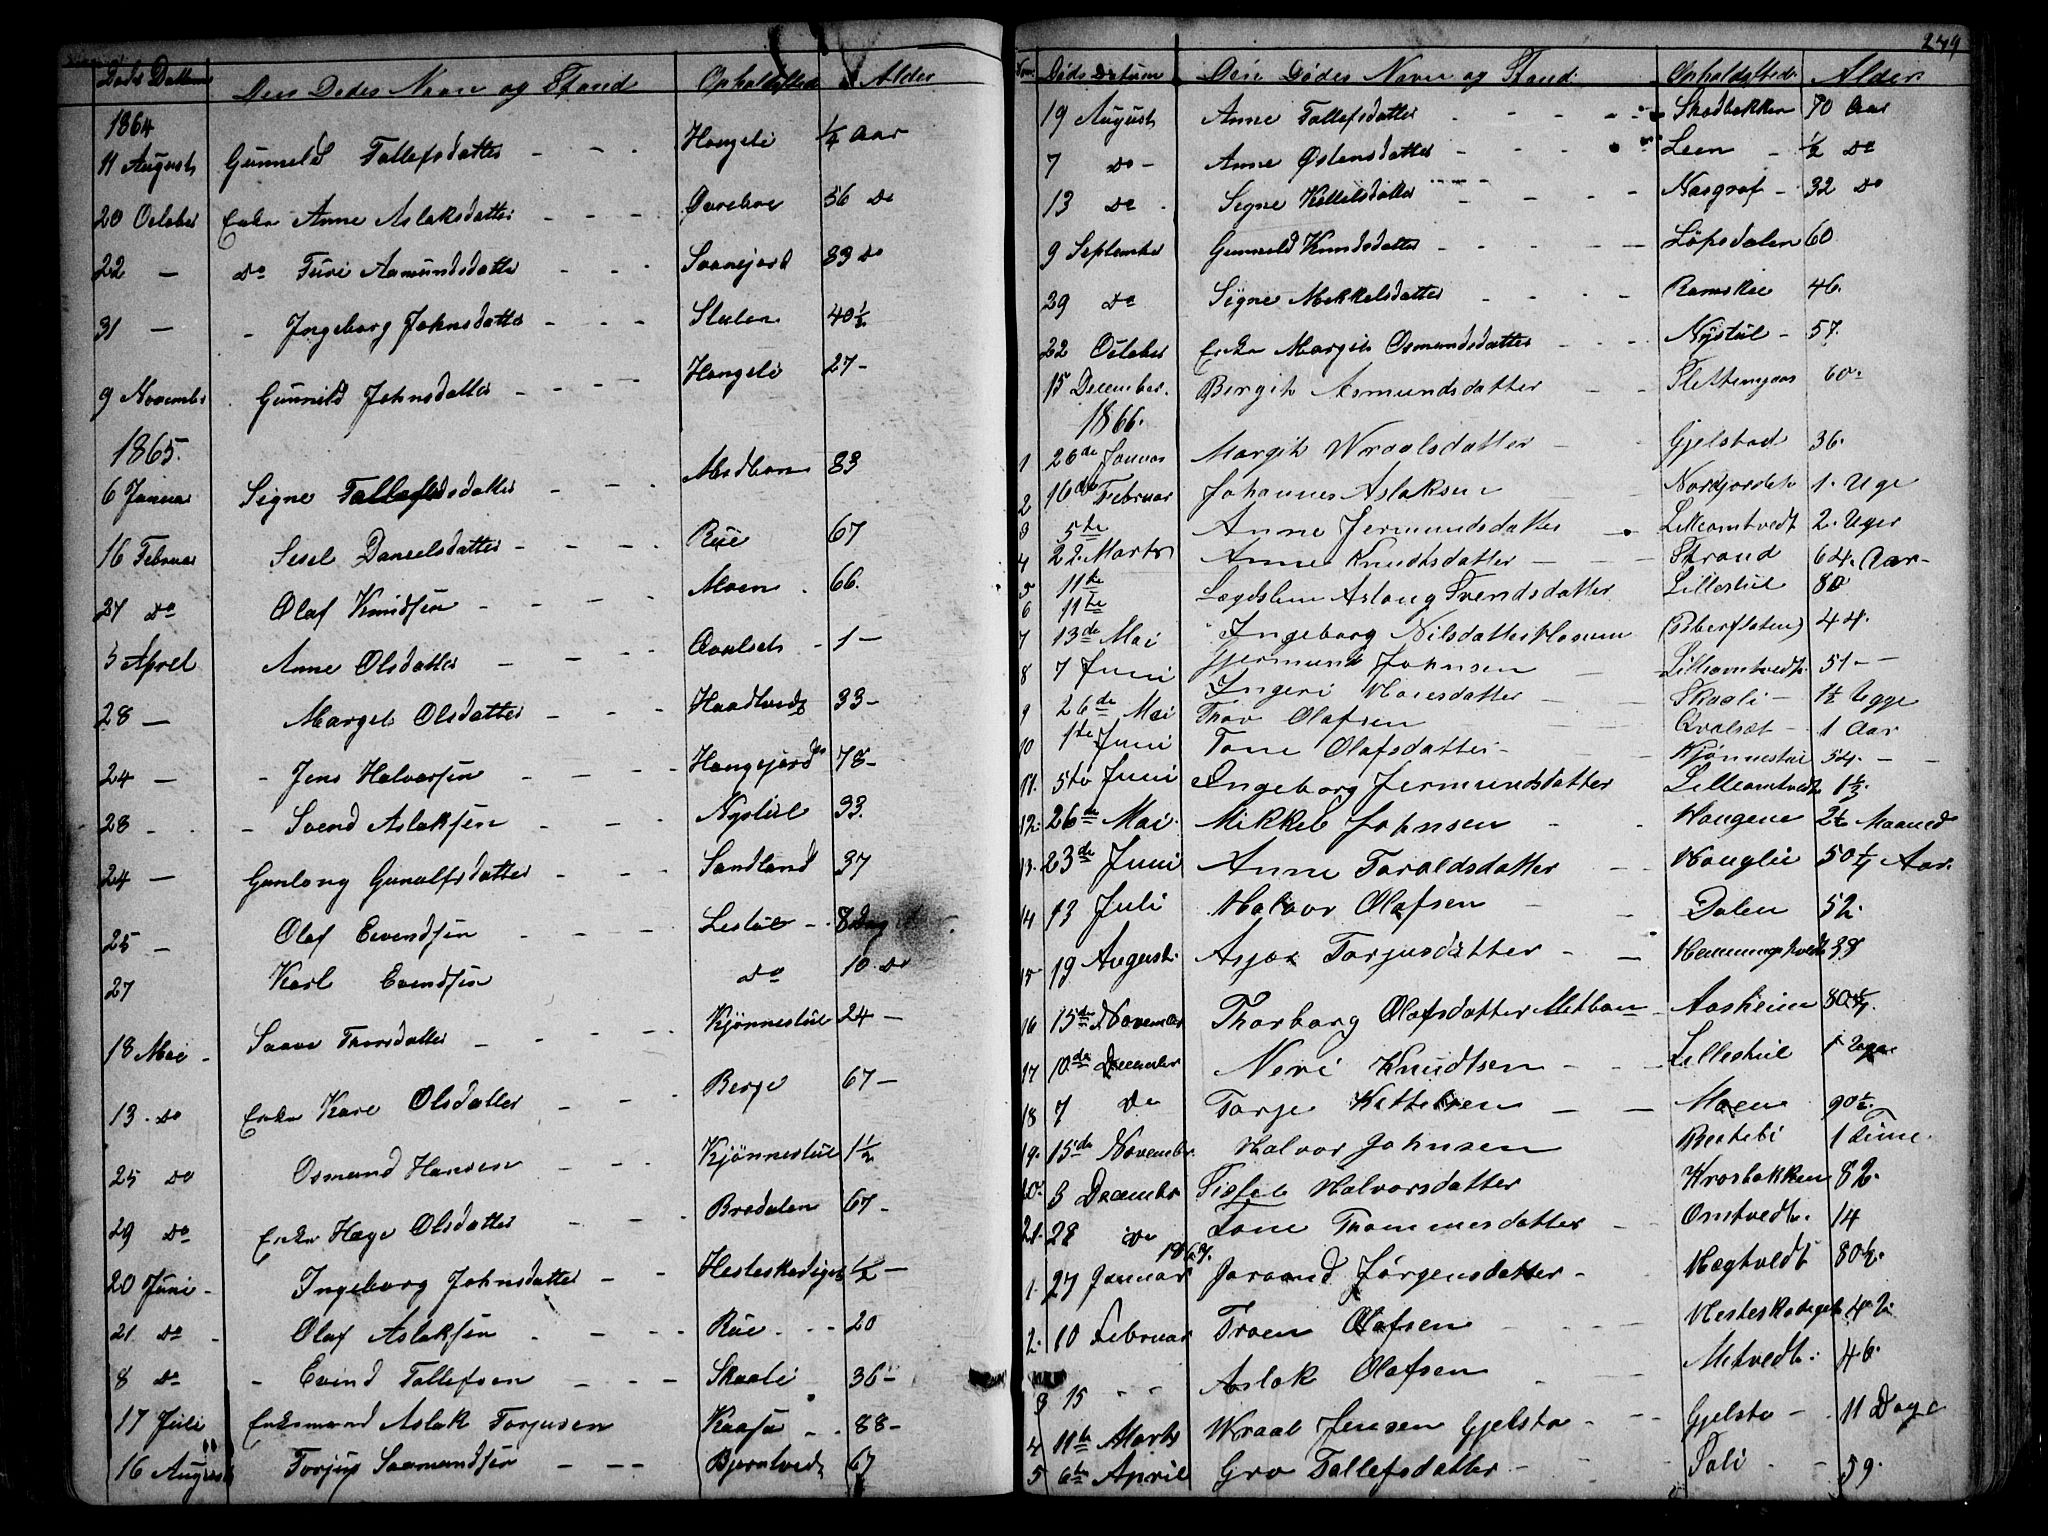 Döds Dattum Den Dødes Navn og Stand Opholdssted Alder
1864
11 August Gunneld Tallefsdatter - - - Hougeli 1/4 Aar
20 October Enke Anne Aslaksdatter - - - Øverbøe 56 do
22 — do Turi Aamundsdatter - - - Saanejord 83 do
31 — - Ingeborg Johnsdatter - - - Stulen 40 1/2
9 November Gunnild Johnsdatter - - - Hougeli 27 -
1865.
6 Januar Signe Tallefsdatter - - - Midbøen 83
16 Februar Sesel Danielsdatter - - - Rue 67
27 do Olaf Knudsen - - - Moen 66.
5 April Anne Olsdatter - - - Qvalset - 1 —
28 — Margit Olsdatter - - - Haadtvedt 33 -
24 — - Jens Halvorsen - - - Hougejord 78 -
28 - - Svend Aslaksen - - - Nystul 33.
24 — Gunloug Gunulfsdatter - - - Sandland 37
25 — Olaf Evendsen - - - Lestul - 8 Dag
27 Karl Evendsen - - - do 10 do
18 Mai - Saave Thorsdatter - - - Kjønnestul 24 —
13 do Enke Kari Olsdatter - - - Berge 67 —
25 do Osmund Hansen - - - Kjønnestul 1 1/2
29 do Enke Hæge Olsdatter - - - Bredalen 67 -
20 Juni - Ingeborg Johnsdatter - - Hesteskodiget 1/2 —
21 do - Olaf Aslaksen - - - Rue - - 20
8 do - Evind Tallefsen - - - Skaali 36 -
17 Juli Enkemand Aslak Torjusen Kaasa - - 88 -
16 August Torjus Saamundsen - - - Bjørntvedt 67
249
Num. Døds Datum Den Dødes Navn og Stand Opholdssted Alder
19 August Anne Tallefsdatter - - - Skodbakken 70 Aar
7 do - Anne Østensdatter - - - Leen - 1/2 do
13 do - Signe Kittilsdatter - - - Næsgraf - 32 do
9 September Gunnild Knudsdatter - - - Löpsdalen 60
29 do Signe Mikkelsdatter - - - Ramskie 46.
22 October Enke Margit Osmundsdatter - - - Nystul - 57.
15 December. Bergit Asmundsdatter - - Slettemyren 60.
1866.
1 26de Januar Margit Wraalsdatter - - Gjelstad 36.
2 16de Februar Johannes Aslaksen - Nordjordet 1. Uge
3 5te Anne Jermundsdatter - Lilleomtvedt 2. Uger
4 22. Marts Anne Knudtsdatter - - Strand 64. Aar -
5 11te Lægdslem Aslaug Svendsdatter Lillestul 80
6 11te
7 13de Mai Ingeborg Nilsdatter Mosum (Piberfloten) 44.
8 7 Juni Gjermund Johnsen - Lilleomtvedt 51. -
9 26de Mai Ingeri Hansdatter - Skaali - 1 1/2 Ugge
Thov Olafsen Qvalsæt - 1 Aar
10 1te Juni Tone Olafsdatter - Kjønnestul 54. - -
11. 5te Juni Ingeborg Jermundsdatter Lilleomtvedt 1 1/2.
12. 26de Mai. Mikkel Johnsen - - Haugene 2 1/2 Maaned
13. 23de Juni Anne Taraldsdatter - - Houglie 50 1/4 Aar.
14 13 Juli Halvor Olafsen - - Dalen 52.
15 19 August. Asjer Torjusdatter - - Hemmingstvedt 38
16 15de November Thorborg Olafsdatter Midboen - Aasheim 80 1/4.
17 10de December Neri Knudtsen - - - Lillestul 1 Uge
18 7 do Torje Kittelsen - - Moen 90 1/2.
19. 15de November. Halvor Johnsen Bertebi 1 Time.
20. 3 December Sissel Halvorsdatter Krosbakken 82.
21. 28 do Tone Thommesdatter - Omtvedt. 14
1867.
1. 27 Januar Joraand Jørgensdatter - - Hægtvedt 80 1/2.
2. 10 Februar Troen Olafsen - - - Hesteskodiget 42.
3 15 - - Aslak Olafsen - - Mitvedt. 46.
4 11te Marts Wraal Jensen Gjelsta - - Gjelsta - 11 Dage
5 6te April Gro Tallefsdatter - - Sali - - 59.